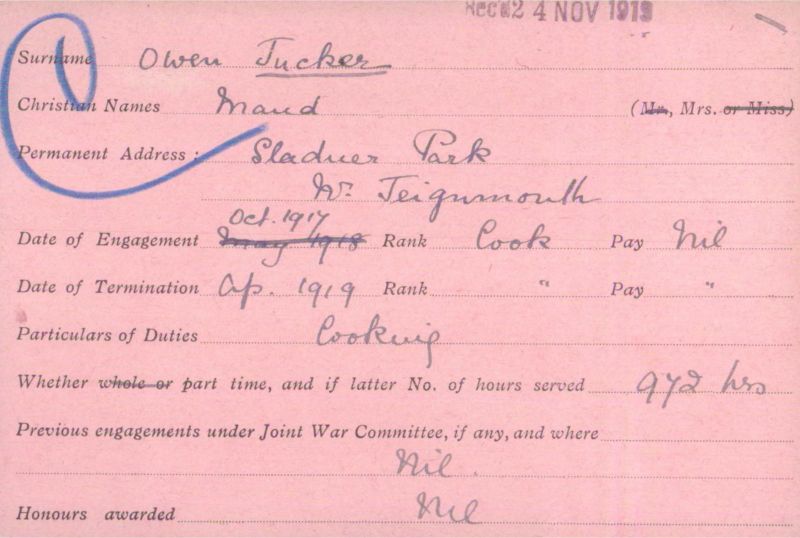 Rec'd 24 NOV 1919
Surname Owen Tucker
Christian Names Maud (Mr., Mrs. or Miss)
Permanent Address: Sladnor Park
Nr. Teignmouth
Oct. 1917
Date of Engagement May 1918 Rank Cook Pay Nil
Date of Termination Ap. 1919 Rank " Pay "
Particulars of Duties Cooking
Whether whole or part time, and if latter No. of hours served 972 hrs
Previous engagements under Joint War Committee, if any, and where
Nil.
Honours awarded Nil